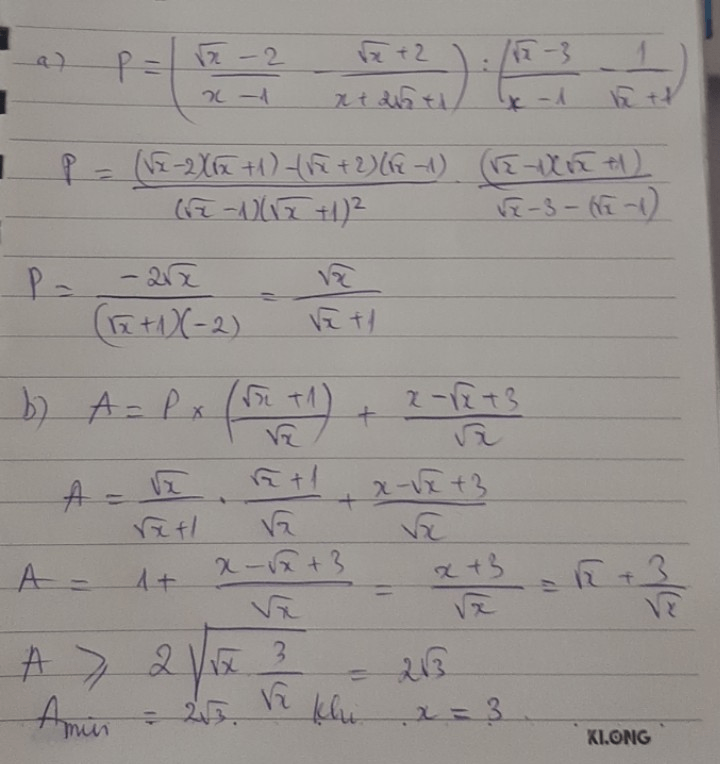 a) P = (√x - 2 / x - 1 - √x + 2 / x + 2√x + 1) : (√x - 3 / x - 1 - 1 / √x + 1)
P = (√x-2)(√x+1) - (√x+2)(√x-1) / (√x-1)(√x+1)² · (√x-1)(√x+1) / √x-3-(√x-1)
P = -2√x / (√x+1)(-2) = √x / √x+1
b) A = P x (√x+1 / √x) + x-√x+3 / √x
A = √x / √x+1 · √x+1 / √x + x-√x+3 / √x
A = 1 + x-√x+3 / √x = x+3 / √x = √x + 3 / √x
A ⩾ 2√(√x 3 / √x) = 2√3
Amin = 2√3. Khi x = 3
KLONG